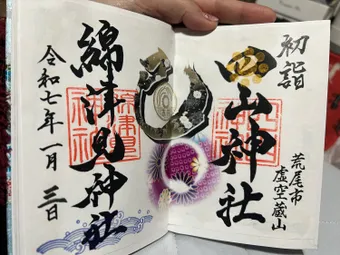 初詣
四山神社
荒尾市
虚空蔵山
綿津見神社
令和七年一月三日